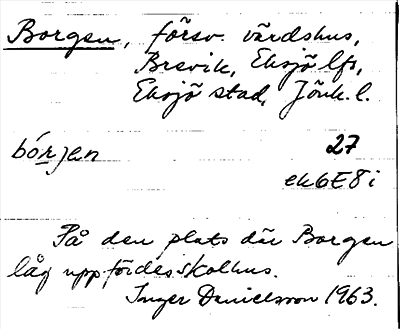 Borgen, försv. värdshus,
Brevik, Eksjö lfs,
Eksjö stad, Jönk. l.
bórjen 27
ek6E8i
På den plats där Borgen
låg uppfördes skolhus.
Inger Danielsson 1963.